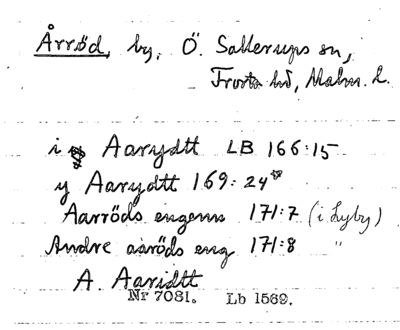 Årröd, by, Ö. Sallerups sn,
Frosta hd, Malm. l.
i Aarydtt LB 166:15
y Aarydtt 169:24
Aarröds engenn 171:7 (i Lyby)
Andre aaröds eng 171:8 "
A. Aaridtt
Nr 7081. Lb 1569.